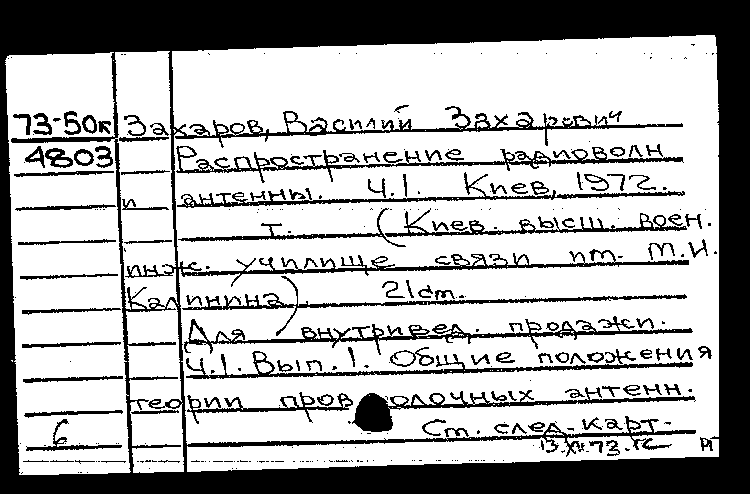 73-50к Захаров, Василий Захарович
4803 Распространение радиоволн
и антенны. Ч.1. Киев, 1972.
т. (Киев. высш. воен.
инж. училище связи им. М.И.
Калинина) 21см.
Для внутривед. продажи.
Ч.1. Вып.1. Общие положения
теории проволочных антенн.
6 См. след. карт.
13.XII.73.